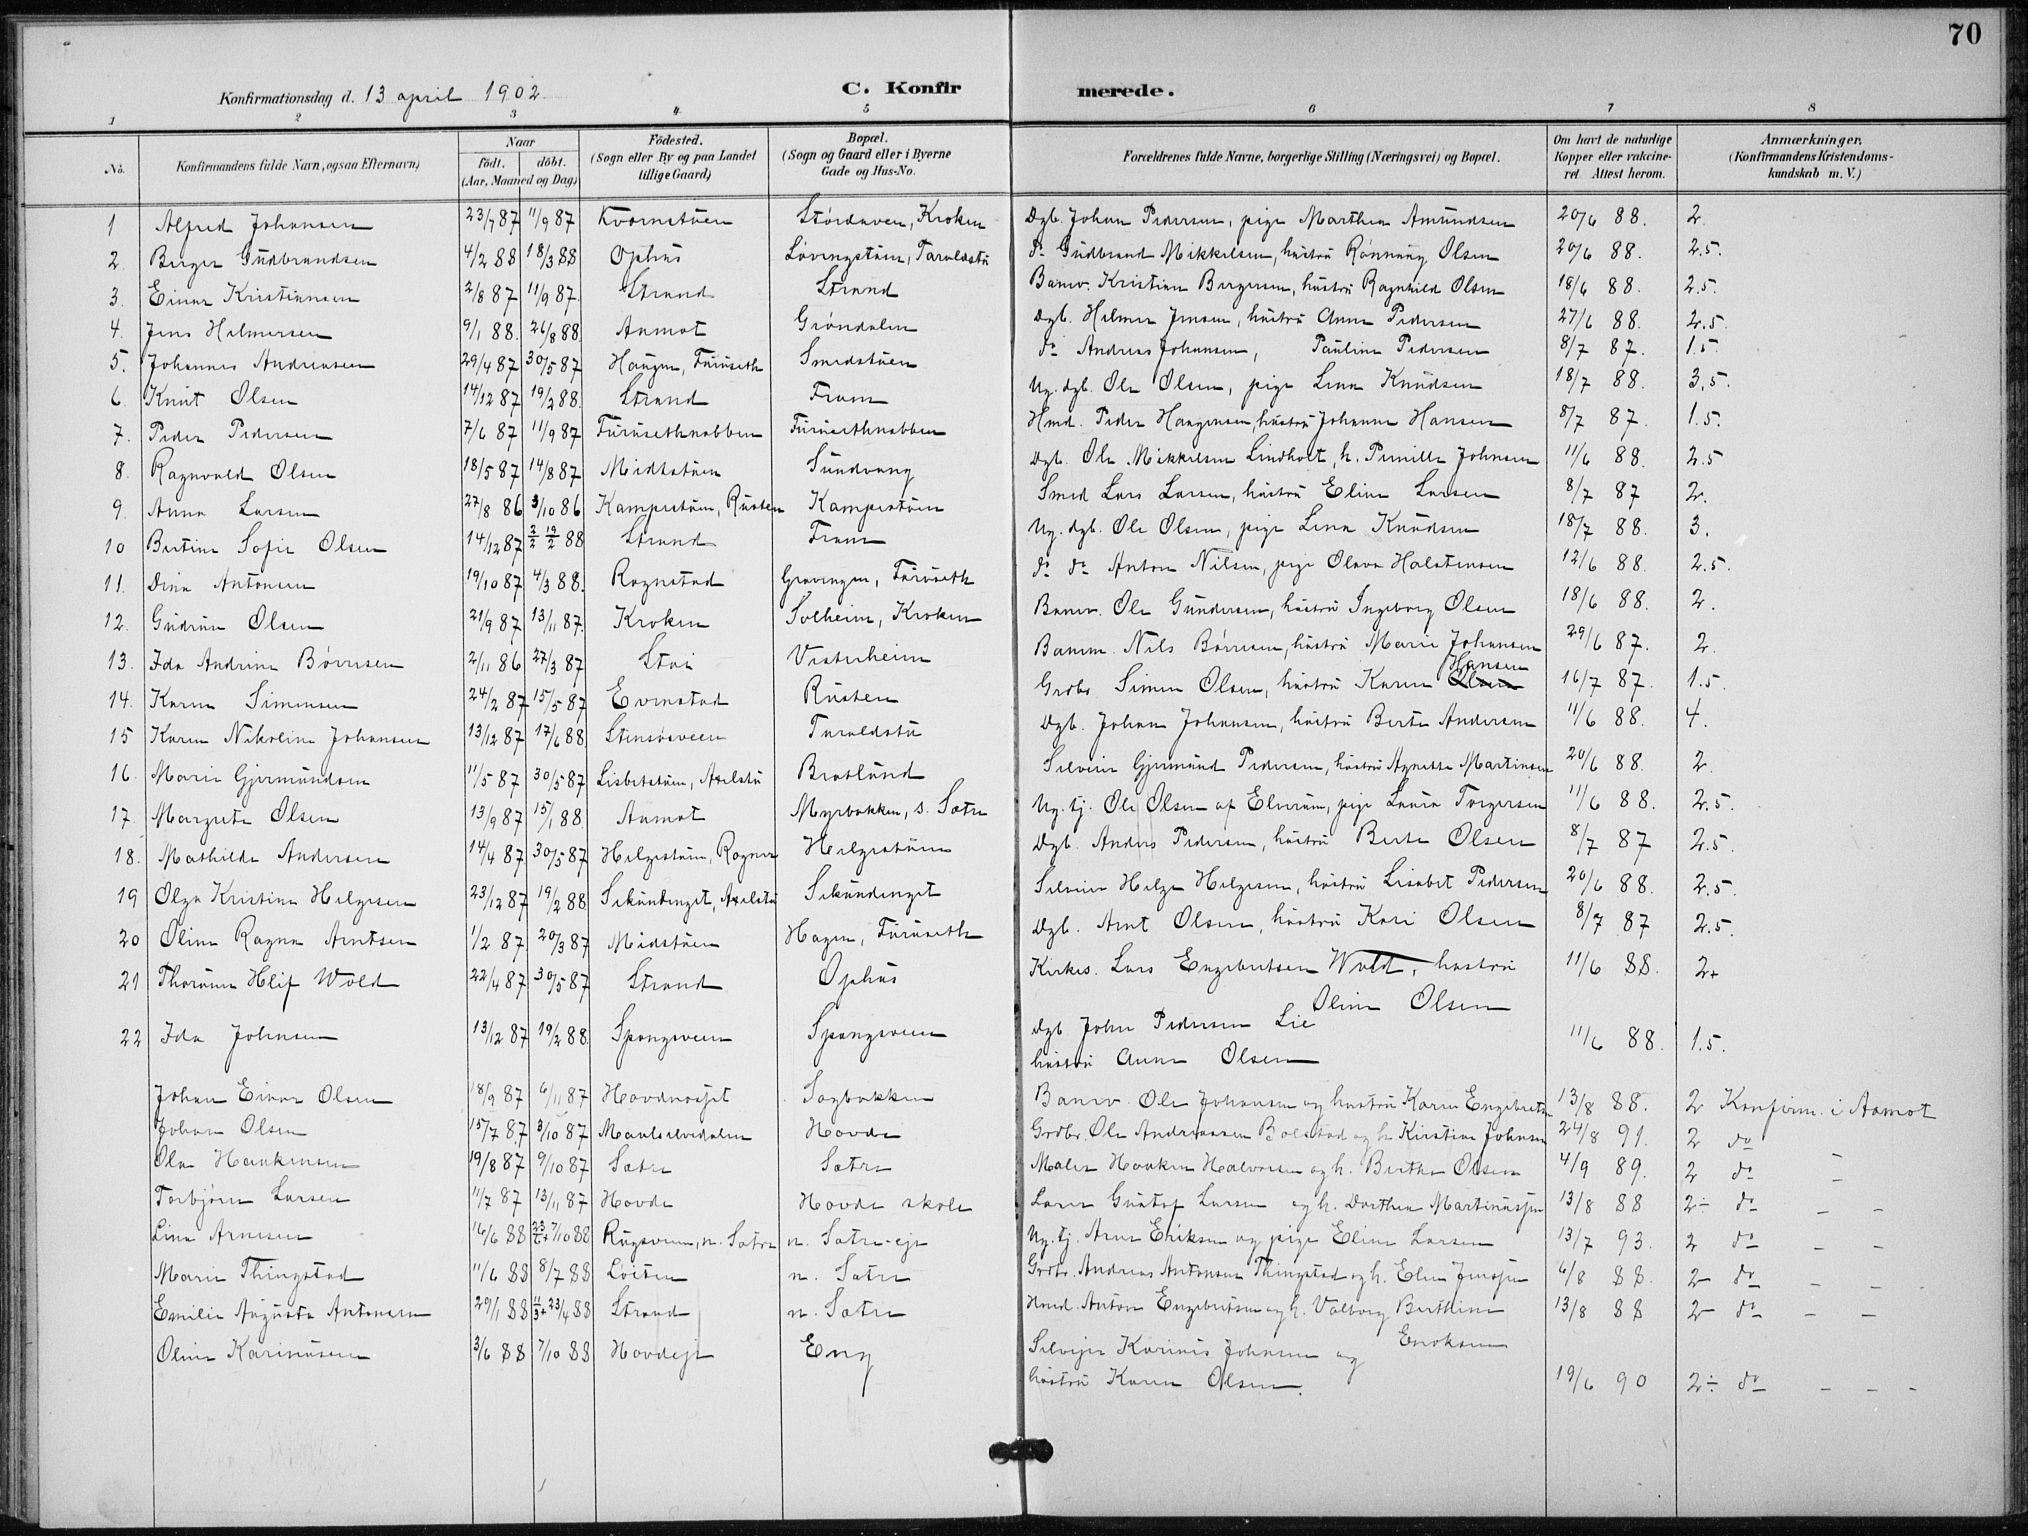 70
Konfirmationsdag d. 13 april 1902. C. Konfirmerede.
1 2 3 4 5 6 7 8
No. Konfirmandens fulde Navn, ogsaa Efternavn) Naar födt. döbt. (Aar, Maaned og Dag) Födested. (Sogn eller By og paa Landet tillige Gaard) Bopæl. (Sogn og Gaard eller i Byerne Gade og Hus-No. Forældrenes fulde Navne, borgerlige Stilling (Næringsvei) og Bopæl. Om havt de naturlige Kopper eller vakcineret. Attest herom. Anmærkninger, (Konfirmandens Kristendomskundskab m. V.)
1 Alfred Johansen 23/7 87 11/9 87 Kværnstuen Stordaven, Kroken Dgb. Johan Pedersen, pige Marthea Amundsen 20/6 88. 2.
2. Birger Gudbrandsen 4/2 88 18/3 88 Ophus Løvingstuen, Taraldstu do Gudbrand Mikkelsen, hustru Rønnaug Olsen 20/6 88. 2.5.
3. Einar Kristiansen 2/8 87 11/9 87. Strand Strand Banev. Kristian Birgersen, hustru Ragnhild Olsen 18/6 88. 2.5.
4. Jens Hilmersen 9/1 88. 26/8 88 Aamot Grøndalen Dgb. Hilmer Jensen, hustru Anne Pedersen 27/6 88. 2.5.
5. Johannes Andreasen 29/4 87 30/5 87 Haugen, Furuseth Smedstuen do Andreas Johansen, Pauline Pedersen 8/7 87. 1.5
6. Knut Olsen 14/12 87 19/2 88. Strand Fram Ug. dgb. Ole Olsen, pige Lina Knudsen 18/7 88. 3.5.
7. Peder Pedersen 7/6 87 11/9 87 Furusethnabben Furusethnabben Hmd. Peder Haagensen, hustru Johanne Hansen 8/7 87. 1.5.
8. Ragnvald Olsen 18/5 87 14/8 87 Midtstuen Sundvang Dgb. Ole Mikkelsen Lindholt, h. Pernille Johnsen 11/6 88. 2.5
9. Anna Larsen 27/8 86 3/10 86 Kampestuen, Rusten Kampestuen Smed Lars Larsen, hustru Eline Larsen 8/7 87 2.
10 Bertine Sofie Olsen 14/12 87 2/2 19/2 88 Strand Fram Ug. dgb. Ole Olsen, pige Lina Knudsen 18/7 88. 3.
11. Dina Antonsen 19/10 87 4/3 88. Rognstad Gravingen, Furuseth do do Anton Nilsen, pige Olava Halstensen 12/6 88. 2.5.
12. Gudrun Olsen 21/9 87 13/11 87. Kroken Solheim, Kroken Banev. Ole Gundersen, hustru Ingeborg Olsen 18/6 88. 2.
13. Ida Andrine Børresen 2/11 86 27/3 87 Stai Vesterheim Banem. Nils Børresen, hustru Marie Johansen 29/6 87. 2.
14. Karen Simensen 24/2 87 15/5 87 Evenstad Rusten Grdbr. Simen Olsen, hustru Karen Hansen 16/7 87. 1.5.
15 Karen Nikoline Johansen 13/12 87 17/6 88. Stensåsveen Taraldstu Dgb. Johan Johansen, hustru Berte Andersen 11/6 88. 4.
16. Marie Gjermundsen 11/5 87 30/5 87 Lisbetstuen, Axelstu Bratlund Selveier Gjermund Pedersen, hustru Agnette Martinsen 20/6 88. 2.
17. Margrete Olsen 13/9 87 15/1 88. Aamot Myrbakken, s. Sætre Ug. tj. Ole Olsen af Elverum, pige Laura Torgersen 11/6 88. 2.5.
18. Mathilde Andersen 14/4 87 30/5 87 Helgestuen, Ragnes Helgestuen Dgb. Anders Pedersen, hustru Berte Olsen 8/7 87 2.5.
19 Olga Kristine Helgesen 23/12 87 19/2 88. Sekundinget, Axelstu Sekundinget Selveier Helge Helgesen, hustru Lisabet Pedersen 20/6 88. 2.5.
20 Oline Ragna Arntsen 1/2 87 20/3 87 Midstuen Hagen, Furuseth Dgb. Arnt Olsen, hustru Kari Olsen 8/7 87 2.5.
21 Thorunn Hlif Wold 22/4 87 30/5 87 Strand Ophus Kirkes. Lars Engebretsen Wold, hustru 11/6 88. 2+
Oline Olsen
22 Ida Johnsen 13/12 87 19/2 88. Spangsveen Spangsveen Dgb John Pedersen Lie 11/6 88. 1.5.
hustru Anne Olsen
Johan Einar Olsen 18/9 87 6/11 87 Hovdnæsset Sagbakken Banev. Ole Johansen og hustru Karen Engebretsen 13/8 88. 2 Konfirm. i Aamot
Johan Olsen 15/7 87 3/10 87 Hovde Grdbr. Ole Andreassen Bolstad og h. Kirstine Johnsen 24/8 91. 2 do –
Ola Haakensen 19/8 87 9/10 87 Sætre Sætre Maler Haaken Halvorsen og h. Berthe Olsen 4/9 89. 2 do –
Torbjørn Larsen 11/7 87 13/11 87 Hovde Hovde skole Lærer Gustaf Larsen og h. Dorthea Martinussen 13/8 88 2÷ do – –
Lina Arnesen 16/6 88 7/10 88 Rugsveen, n. Sætre n. Sætre-eje Ug. tj. Arne Eriksen og pige Eline Larsen 13/7 93. 2 do – –
Marie Thingstad 11/6 88 8/7 88 Löiten n. Sætre Grdbr. Andreas Antonsen Thingstad og h. Elen Jenssen 6/8 88. 2- do – –
Emilie Augusta Antonsen 29/1 88 11/3+23/4 88 Strand n. Sætre Hmd. Anton Engebretsen og h. Valborg Berthine 13/8 88 2- do – –
Enoksen
Oline Karinusen 3/6 88 7/10 88 Hovdeje Eng Selveier Karinus Johnsen og
hustru Karen Olsen. 19/6 90 2÷ do – – –